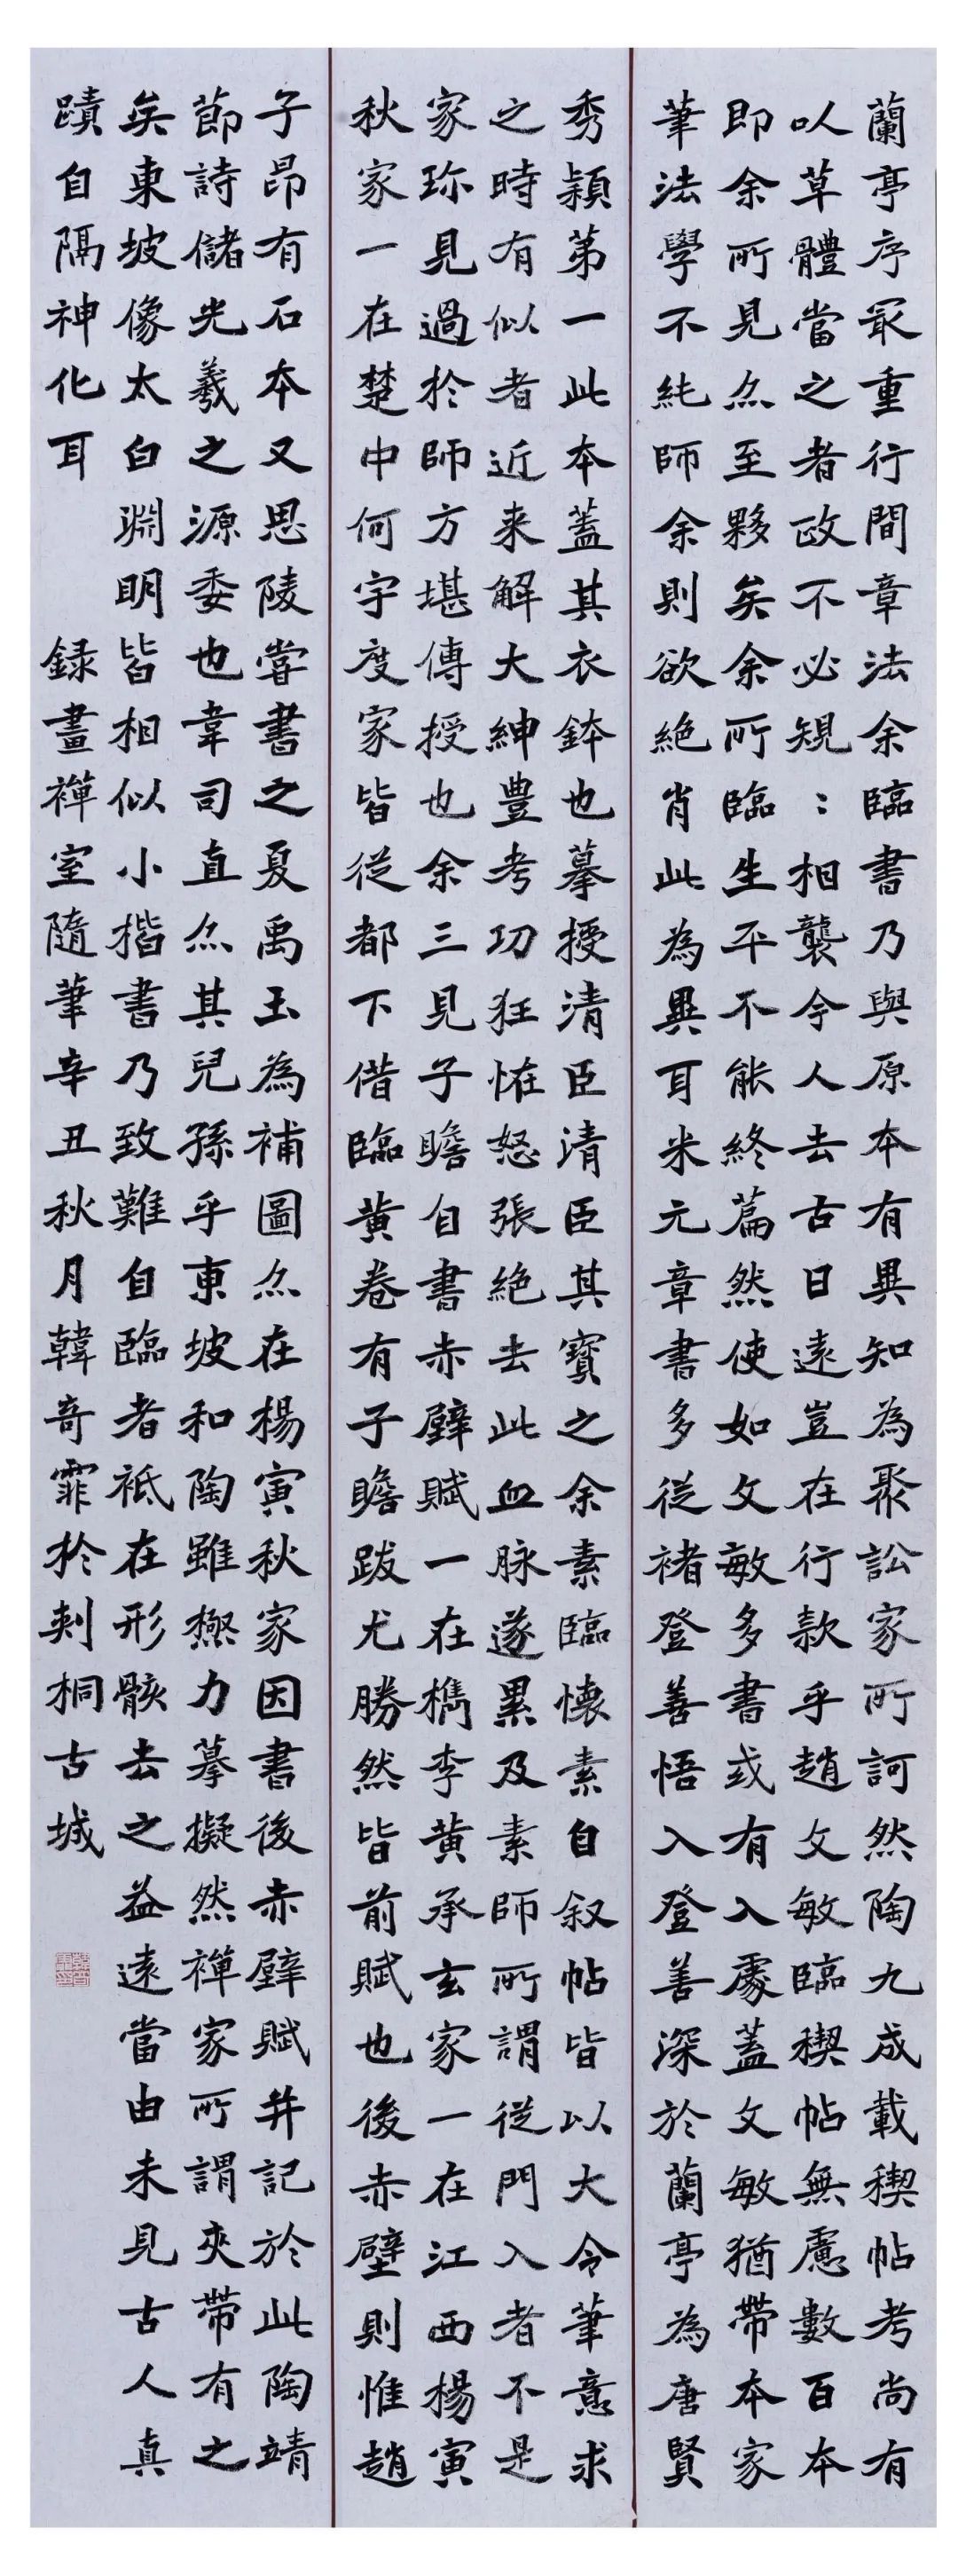 蘭亭序冣重行間章法余臨書乃與原本有異知為聚訟家所訶然陶九成載稧帖考尚有
以草體當之者政不必規〻相襲今人去古日遠豈在行款乎趙文敏臨稧帖無慮數百本
即余所見亦至夥矣余所臨生平不能終篇然使如文敏多書或有入處蓋文敏猶帶本家
筆法學不純師余則欲絕肖此為異耳米元章書多從褚登善悟入登善深於蘭亭為唐賢
秀穎第一此本蓋其衣鉢也摹授清臣清臣其寳之余素臨懐素自叙帖皆以大令筆意求
之時有似者近来解大紳豊考功狂怪怒張絕去此血脉遂累及素師所謂從門入者不是
家珎見過於師方堪傳授也余三見子瞻自書赤壁賦一在檇李黄承玄家一在江西楊寅
秋家一在楚中何宇度家皆從都下借臨黄卷有子瞻跋尤勝然皆前賦也後赤壁則惟趙
子昂有石本又思陵嘗書之夏禹玉為補圖亦在楊寅秋家因書後赤壁賦并記於此陶靖
節詩儲光羲之源委也韋司直亦其兒孫乎東坡和陶雖極力摹擬然禪家所謂夾帶有之
矣東坡像太白淵明皆相似小揩書乃致難自臨者祗在形骸去之益遠當由未見古人真
蹟自隔神化耳　錄畫禪室隨筆辛丑秋月韓奇霏於刺桐古城